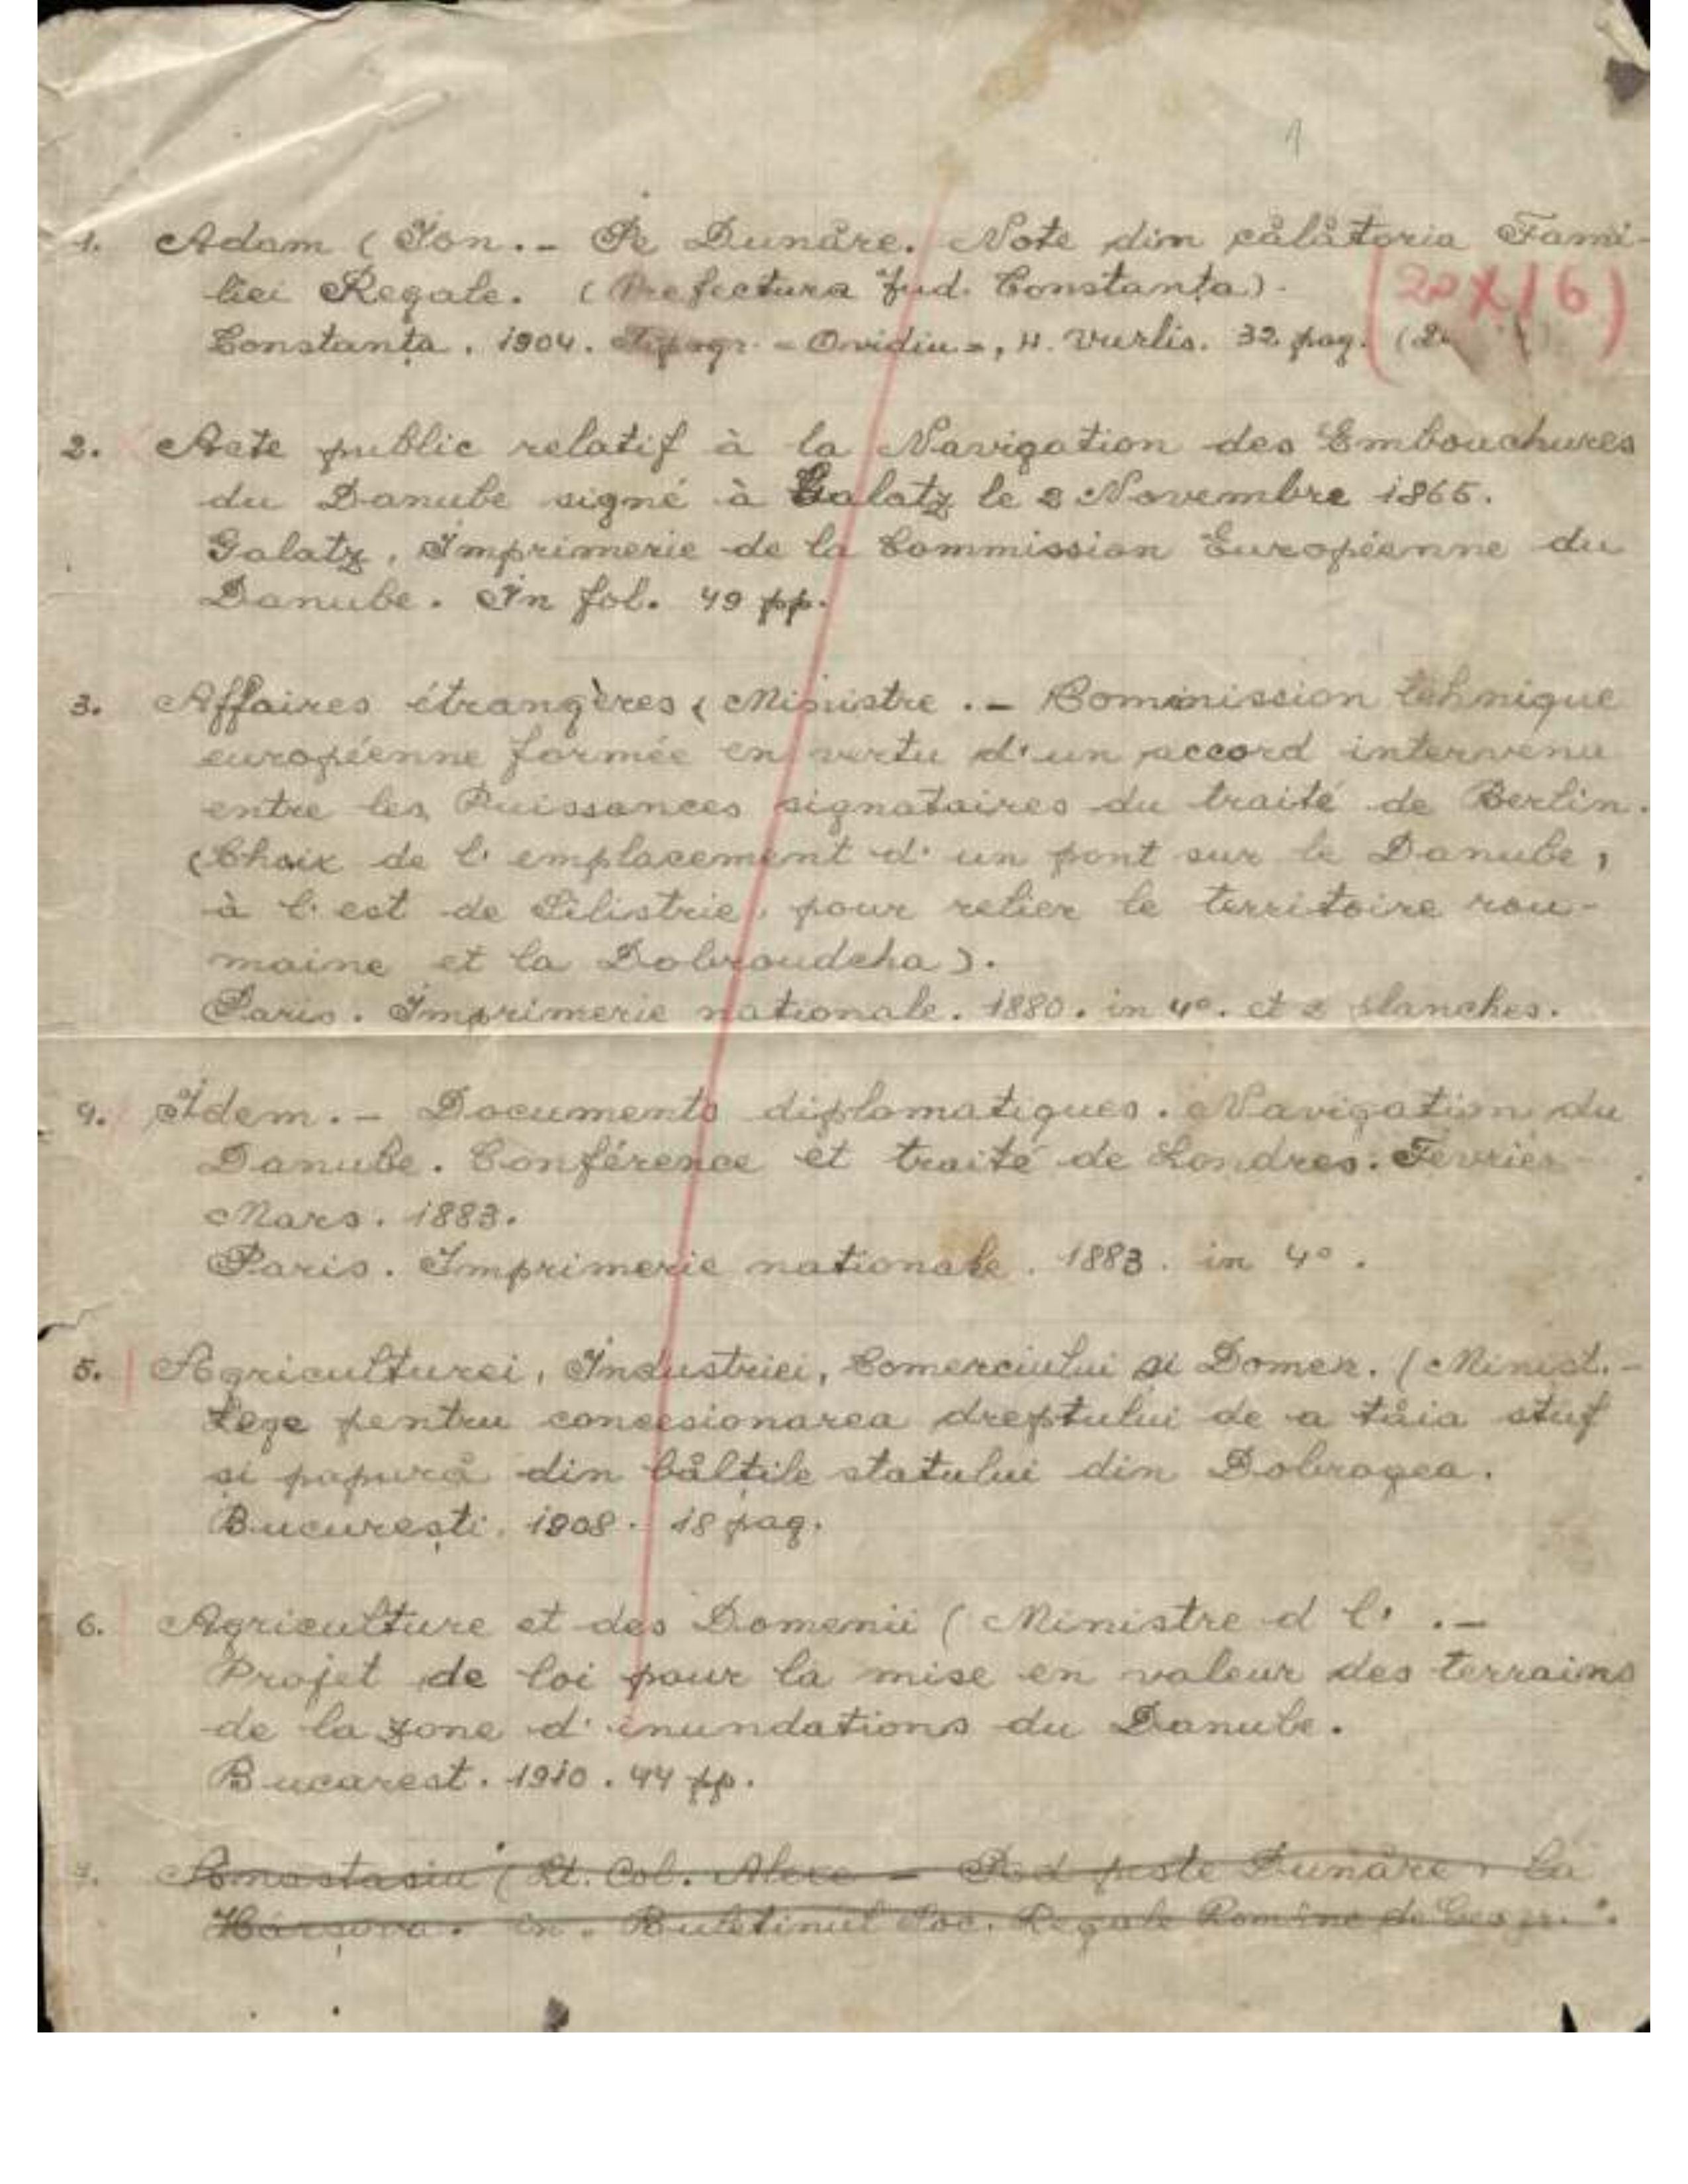 1
1. Adam (Ion. - Pe Dunăre. Note din călătoria Fami-
liei Regale. (Prefectura Jud. Constanța).
(20X16)
Constanța. 1904. Tipogr. "Ovidiu", H. Vurlis. 32 pag.
2. Acte public relatif à la Navigation des Embouchures
du Danube signé à Galatz le 2 Novembre 1865.
Galatz, Imprimerie de la Commission Européenne du
Danube. In fol. 49 pp.
3. Affaires étrangères (Ministre. - Commission tehnique
européenne formée en vertu d'un accord intervenu
entre les Puissances signataires du traité de Berlin.
(Choix de l'emplacement d'un pont sur le Danube,
à l'est de Silistrie, pour relier le territoire rou-
maine et la Dobroudcha).
Paris. Imprimerie nationale. 1880. in 4°. et 2 planches.
4. Idem. - Documents diplomatiques. Navigation du
Danube. Conférence et traité de Londres. Février-
Mars. 1883.
Paris. Imprimerie nationale. 1883. in 4°.
5. Agriculturei, Industriei, Comerciului și Domen. (Minist. -
Lege pentru concesionarea dreptului de a tăia stuf
și papură din bălțile statului din Dobrogea.
București. 1908. 18 pag.
6. Agriculture et des Domenii (Ministre d l'. -
Projet de loi pour la mise en valeur des terrains
de la zone d'inundations du Danube.
Bucarest. 1910. 44 pp.
7. Anastasiu (Lt. Col. Alexe - Pod peste Dunăre, la
Hârșova. in "Buletinul Soc. Regale Române de Geogr.".